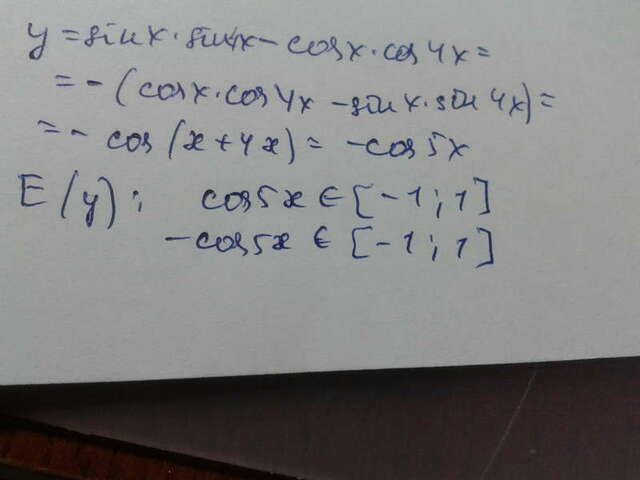 y = sin x · sin 4x − cos x · cos 4x =
= − (cos x · cos 4x − sin x · sin 4x) =
= − cos (x + 4x) = − cos 5x
E(y): cos 5x ∈ [−1; 1]
− cos 5x ∈ [−1; 1]